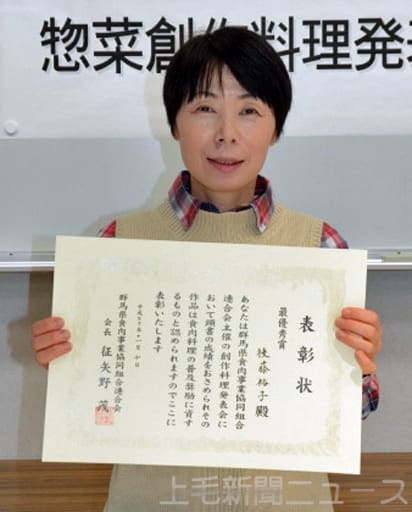 惣菜創作料理発表
表彰状
最優秀賞
裕子殿
あなたは群馬県食肉事業協同組合
連合会主催の創作料理発表会に
おいて頭書の成績をおさめられその
作品は食肉料理の普及奨励に資す
るものと認められますのでここに
表彰いたします
群馬県食肉事業協同組合連合会
会長 征矢野 茂
上毛新聞ニュース